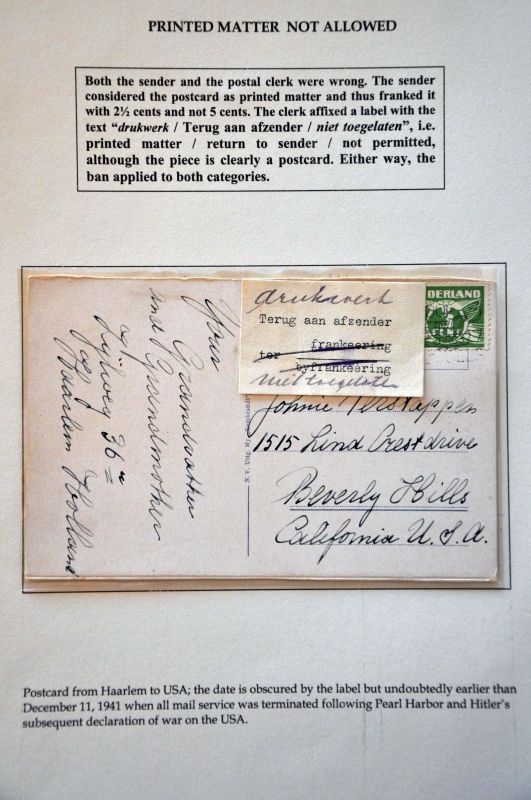 PRINTED MATTER NOT ALLOWED
Both the sender and the postal clerk were wrong. The sender
considered the postcard as printed matter and thus franked it
with 2½ cents and not 5 cents. The clerk affixed a label with the
text “drukwerk / Terug aan afzender / niet toegelaten”, i.e.
printed matter / return to sender / not permitted,
although the piece is clearly a postcard. Either way, the
ban applied to both categories.
Your
Grandvather
und Grandmother
Zijlweg 36
Haarlem Holland
drukwerk
Terug aan afzender
frankeering
ter byfrankeering
niet toegelaten
DERLAND
CENT
N.V. Uitg. My.
Johnie Verstappen
1515 Lind Crestdrive
Beverly Hills
California U.S.A.
Postcard from Haarlem to USA; the date is obscured by the label but undoubtedly earlier than
December 11, 1941 when all mail service was terminated following Pearl Harbor and Hitler's
subsequent declaration of war on the USA.